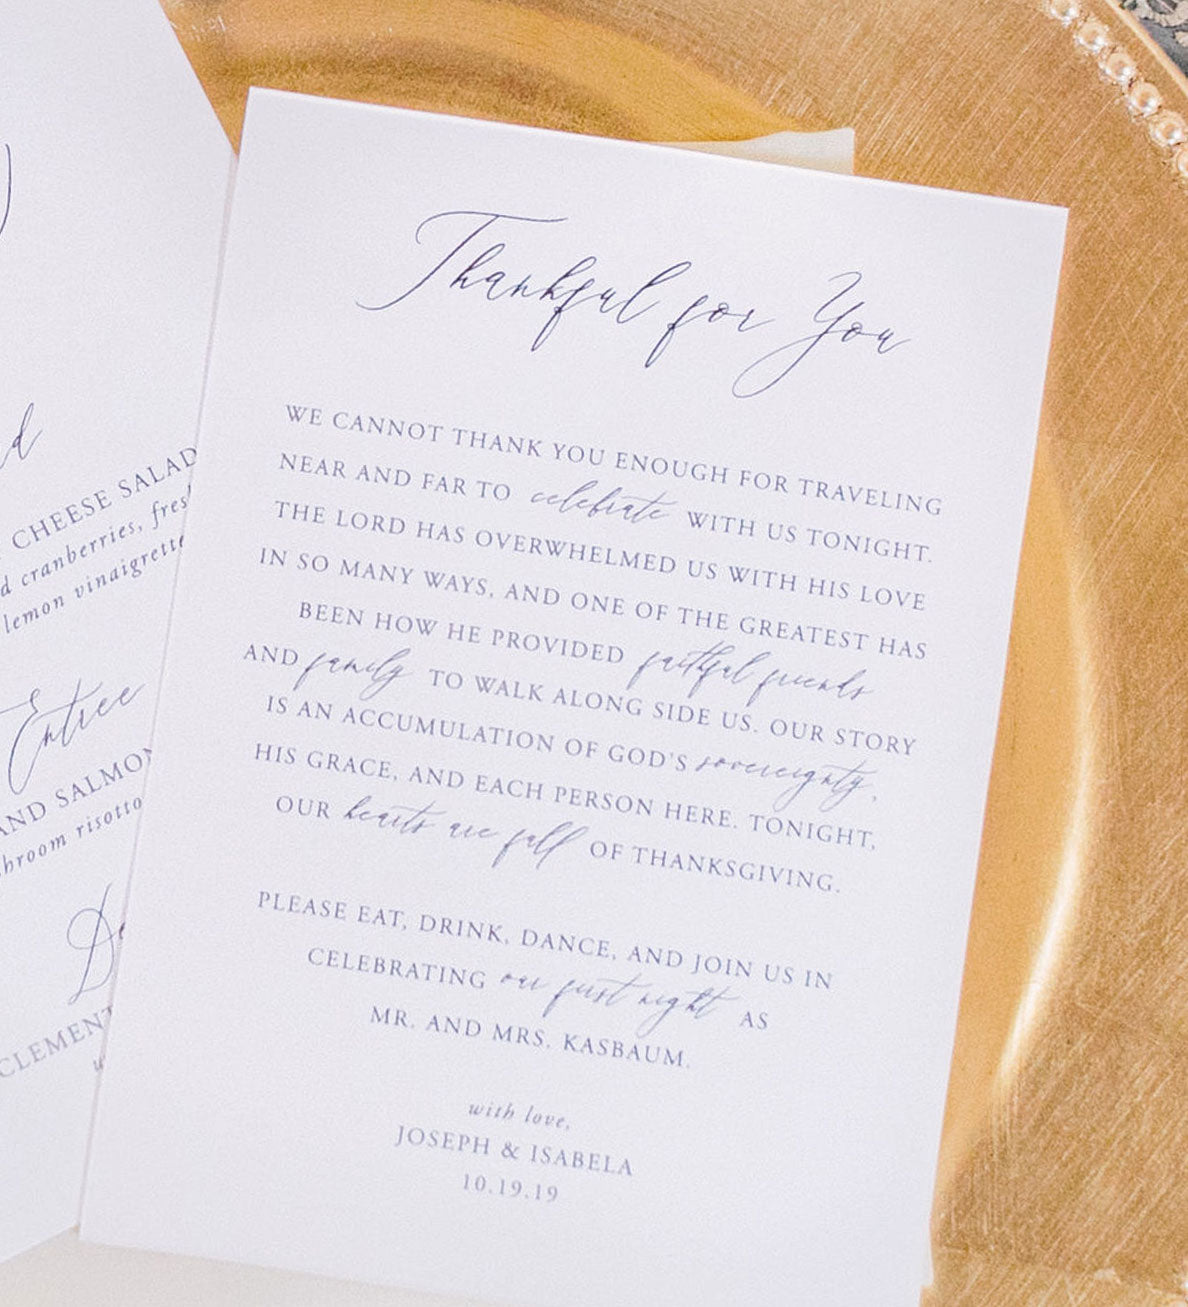 Thankful for You
WE CANNOT THANK YOU ENOUGH FOR TRAVELING
NEAR AND FAR TO celebrate WITH US TONIGHT.
THE LORD HAS OVERWHELMED US WITH HIS LOVE
IN SO MANY WAYS, AND ONE OF THE GREATEST HAS
BEEN HOW HE PROVIDED faithful friends
AND family TO WALK ALONG SIDE US. OUR STORY
IS AN ACCUMULATION OF GOD'S sovereignty,
HIS GRACE, AND EACH PERSON HERE. TONIGHT,
OUR hearts are full OF THANKSGIVING.
PLEASE EAT, DRINK, DANCE, AND JOIN US IN
CELEBRATING our first night AS
MR. AND MRS. KASBAUM.
with love,
JOSEPH & ISABELA
10.19.19
CHEESE SALAD
cranberries,
lemon vinaigrette
Entree
AND SALMON
risotto